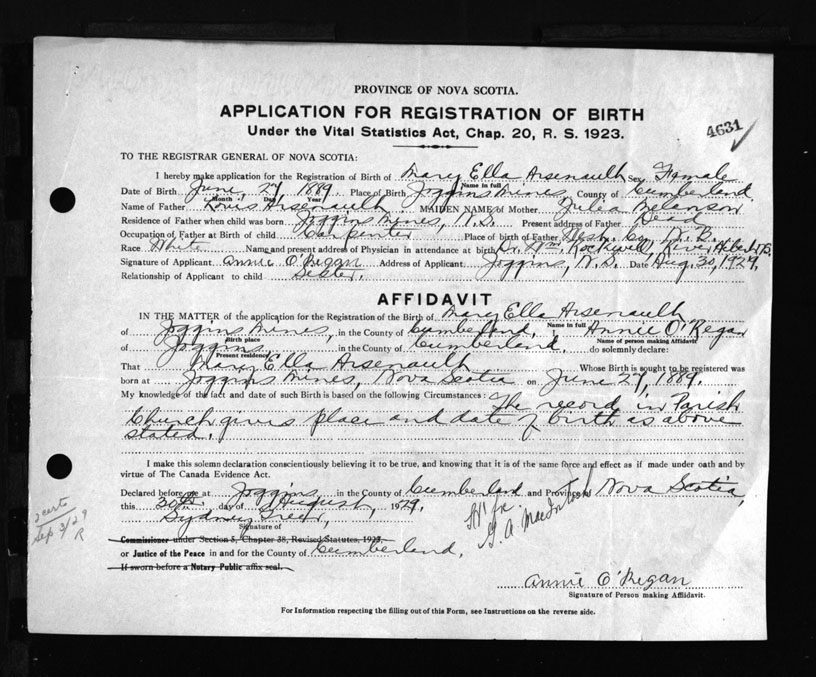 PROVINCE OF NOVA SCOTIA.
APPLICATION FOR REGISTRATION OF BIRTH
Under the Vital Statistics Act, Chap. 20, R. S. 1923.
4631
TO THE REGISTRAR GENERAL OF NOVA SCOTIA:
I hereby make application for the Registration of Birth of Mary Ella Arsenault Sex Female
Name in full
Date of Birth June 27 1889 Place of Birth Joggins Mines, County of Cumberland.
Month Day Year
Name of Father Louis Arsenault MAIDEN NAME of Mother Julia Belanson
Residence of Father when child was born Joggins Mines, N.S. Present address of Father Dead
Occupation of Father at Birth of child Carpenter Place of birth of Father Co., N.B.
Race White Name and present address of Physician in attendance at birth Dr. Wm. Rockwell, River Hebert, N.S.
Signature of Applicant Annie O'Regan Address of Applicant Joggins, N.S. Date Aug. 30, 1929.
Relationship of Applicant to child Sister.
AFFIDAVIT
IN THE MATTER of the application for the Registration of the Birth of Mary Ella Arsenault
Name in full
of Joggins Mines, in the County of Cumberland, Annie O'Regan
Birth place Name of person making Affidavit
of Joggins in the County of Cumberland, do solemnly declare:
Present residence
That Mary Ella Arsenault Whose Birth is sought to be registered was
born at Joggins Mines, Nova Scotia on June 27, 1889.
My knowledge of the fact and date of such Birth is based on the following Circumstances: The record in Parish
Church gives place and date of birth as above
stated.
I make this solemn declaration conscientiously believing it to be true, and knowing that it is of the same force and effect as if made under oath and by
virtue of The Canada Evidence Act.
Declared before me at Joggins in the County of Cumberland and Province of Nova Scotia,
this 30th day of August, 1929.
Sydney
Signature of
Commissioner under Section 5, Chapter 38, Revised Statutes, 1923,
or Justice of the Peace in and for the County of Cumberland.
If sworn before a Notary Public affix seal.
G. A. MacIntosh
Sep 3/29
R
Annie O'Regan
Signature of Person making Affidavit.
For Information respecting the filling out of this Form, see Instructions on the reverse side.